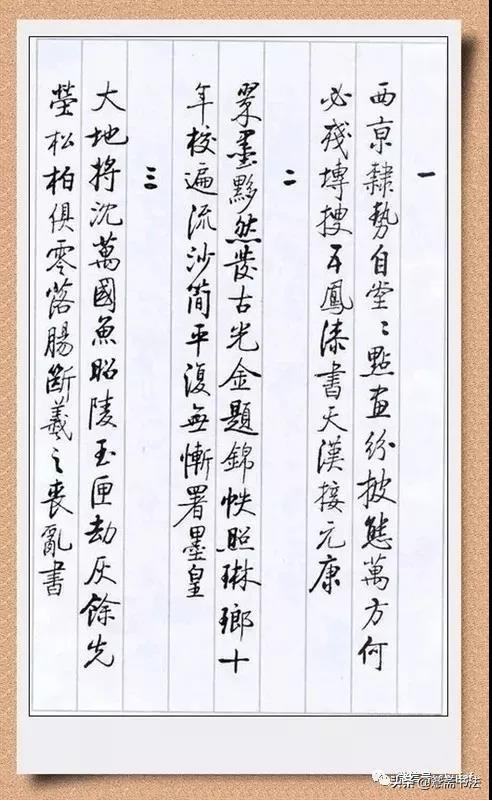 一
西京隸勢自堂〻點畫紛披態萬方何
必殘塼搜五鳳漆書天漢接元康
二
翠墨黟然發古光金題錦帙照琳瑯十
年校遍流沙簡平復無慚署墨皇
三
大地將沈萬國魚昭陵玉匣劫灰餘先
塋松柏俱零落腸斷羲之喪亂書
头条@懋斋书法